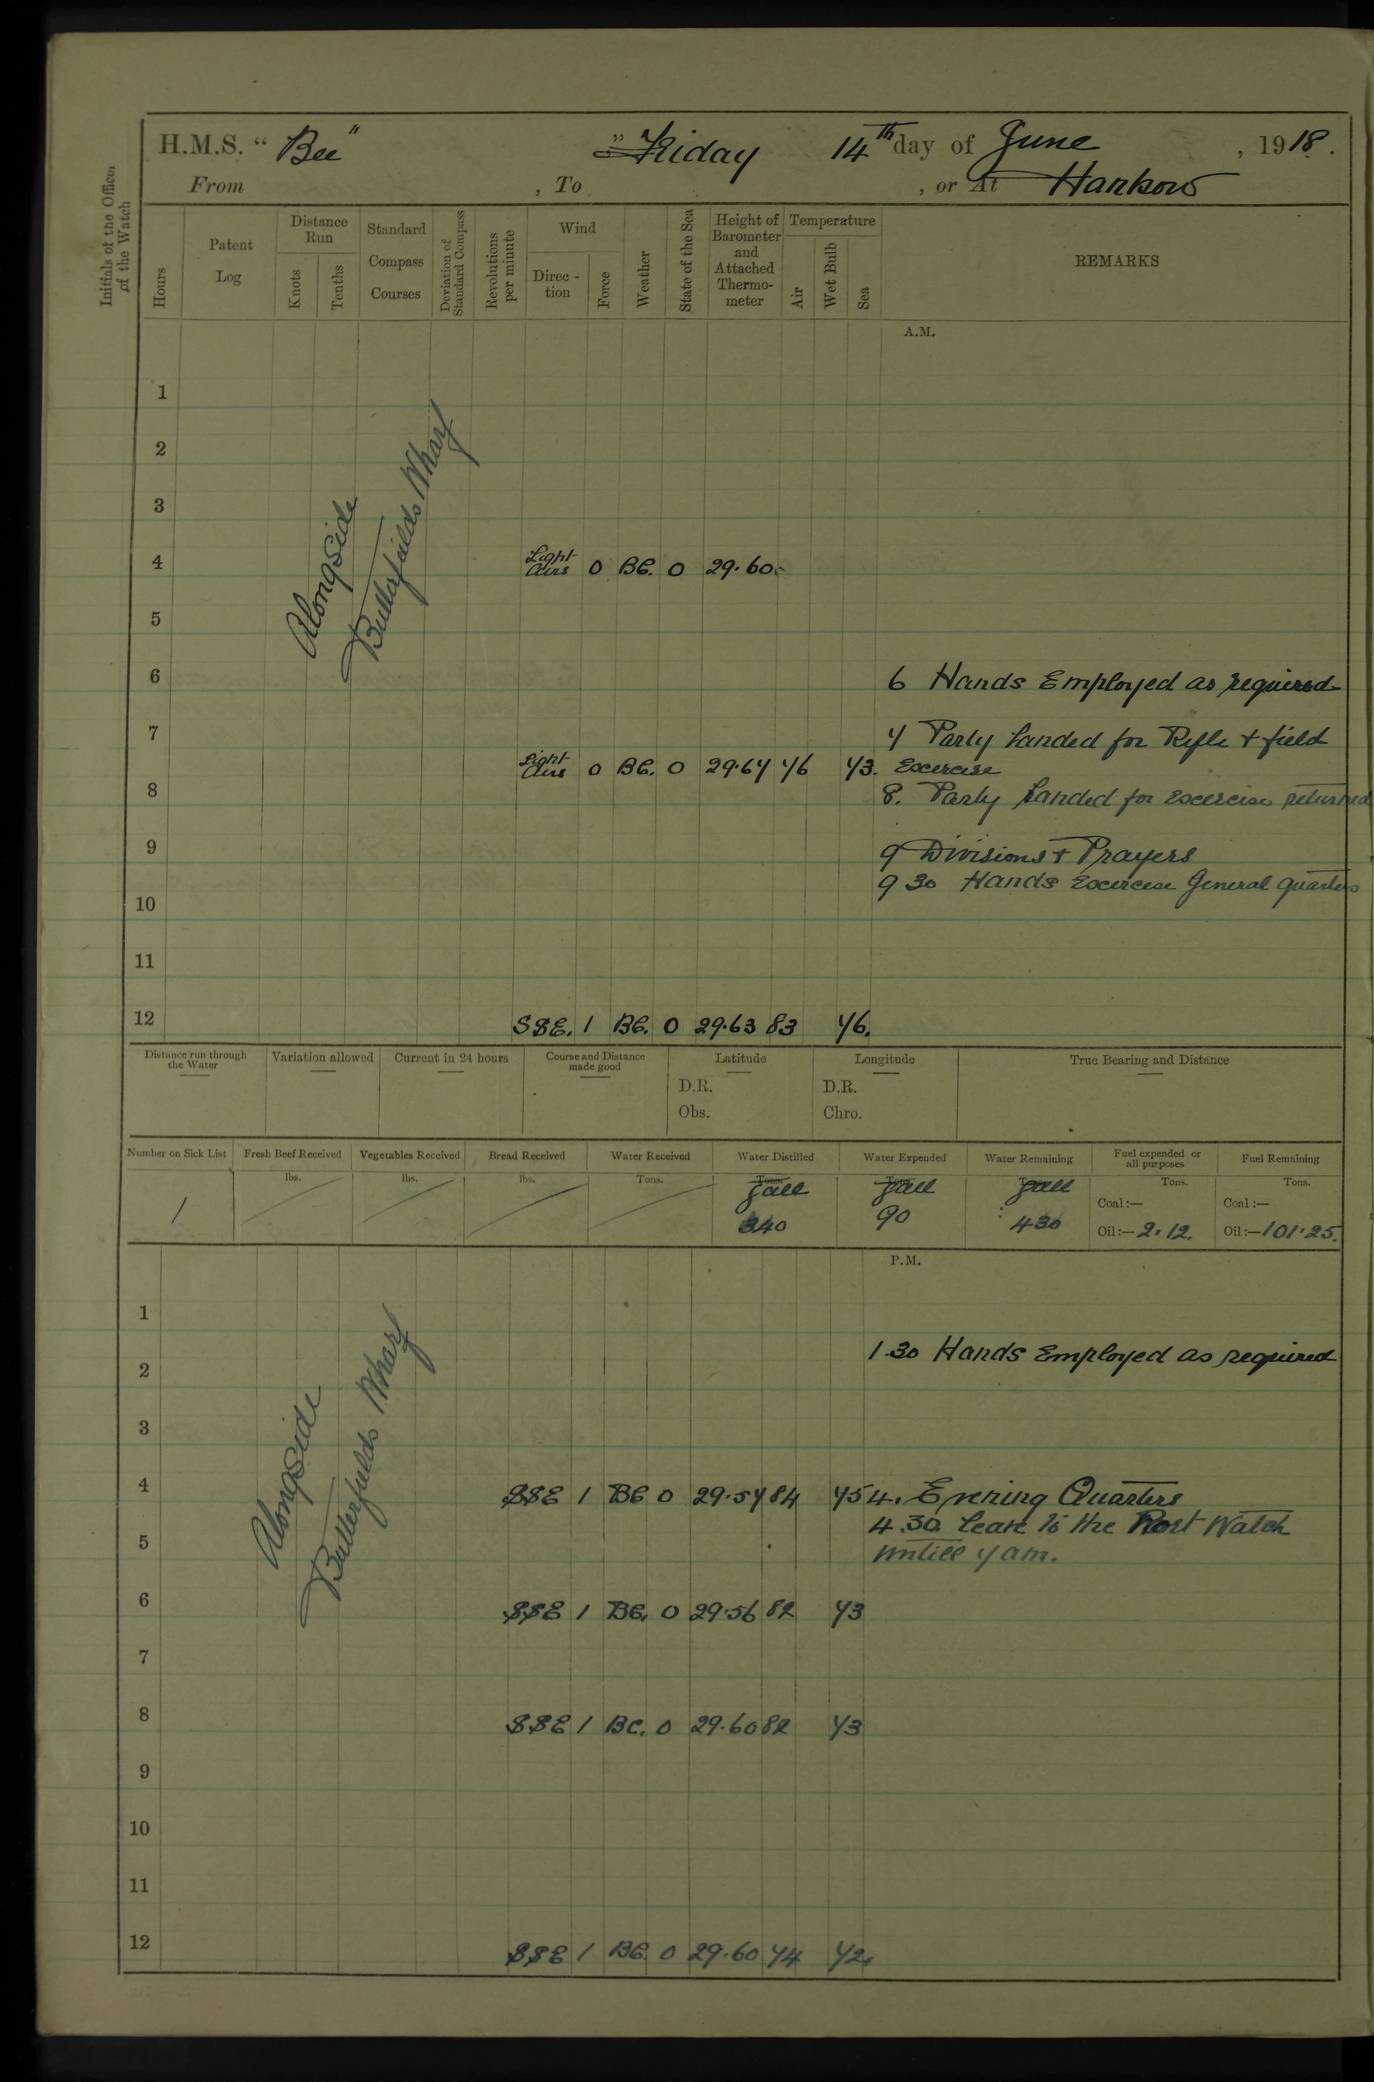 H.M.S. “ Bee ” Friday 14th day of June , 1918.
From , To , or At Hankow
Initials of the Officer of the Watch
Hours
Patent Log
Distance Run
Knots
Tenths
Standard Compass Courses
Deviation of Standard Compass
Revolutions per minute
Wind
Direction
Force
Weather
State of the Sea
Height of Barometer and Attached Thermometer
Temperature
Air
Wet Bulb
Sea
REMARKS
A.M.
1
2
3
Alongside
Butterfields Wharf
4 Light Airs 0 BC. 0 29.60
5
6 6 Hands Employed as required
7 7 Party landed for Rifle + field
Light Airs 0 BC. 0 29.67 76 73. Excercise
8 8. Party Landed for Excercise returned
9 9 Divisions + Prayers
9 30 Hands Excercise General Quarters
10
11
12 SSE. 1 BC. 0 29.63 83 76.
Distance run through the Water
Variation allowed
Current in 24 hours
Course and Distance made good
Latitude
D.R.
Obs.
Longitude
D.R.
Chro.
True Bearing and Distance
Number on Sick List
1
Fresh Beef Received
lbs.
Vegetables Received
lbs.
Bread Received
lbs.
Water Received
Tons.
Water Distilled
Tons.
Gall
340
Water Expended
Tons.
Gall
90
Water Remaining
Tons.
Gall
430
Fuel expended or all purposes
Tons.
Coal :—
Oil :— 2.12.
Fuel Remaining
Tons.
Coal :—
Oil :— 101.25.
P.M.
1
1.30 Hands Employed as required
2
3
Alongside
Butterfields Wharf
4 SSE 1 BC 0 29.57 84 75 4. Evening Quarters
4.30 Leave to the Port Watch
5 untill 7 am.
6 SSE 1 BC. 0 29.56 82 73
7
8 SSE 1 BC. 0 29.60 82 73
9
10
11
12 SSE 1 BC. 0 29.60 74 72.